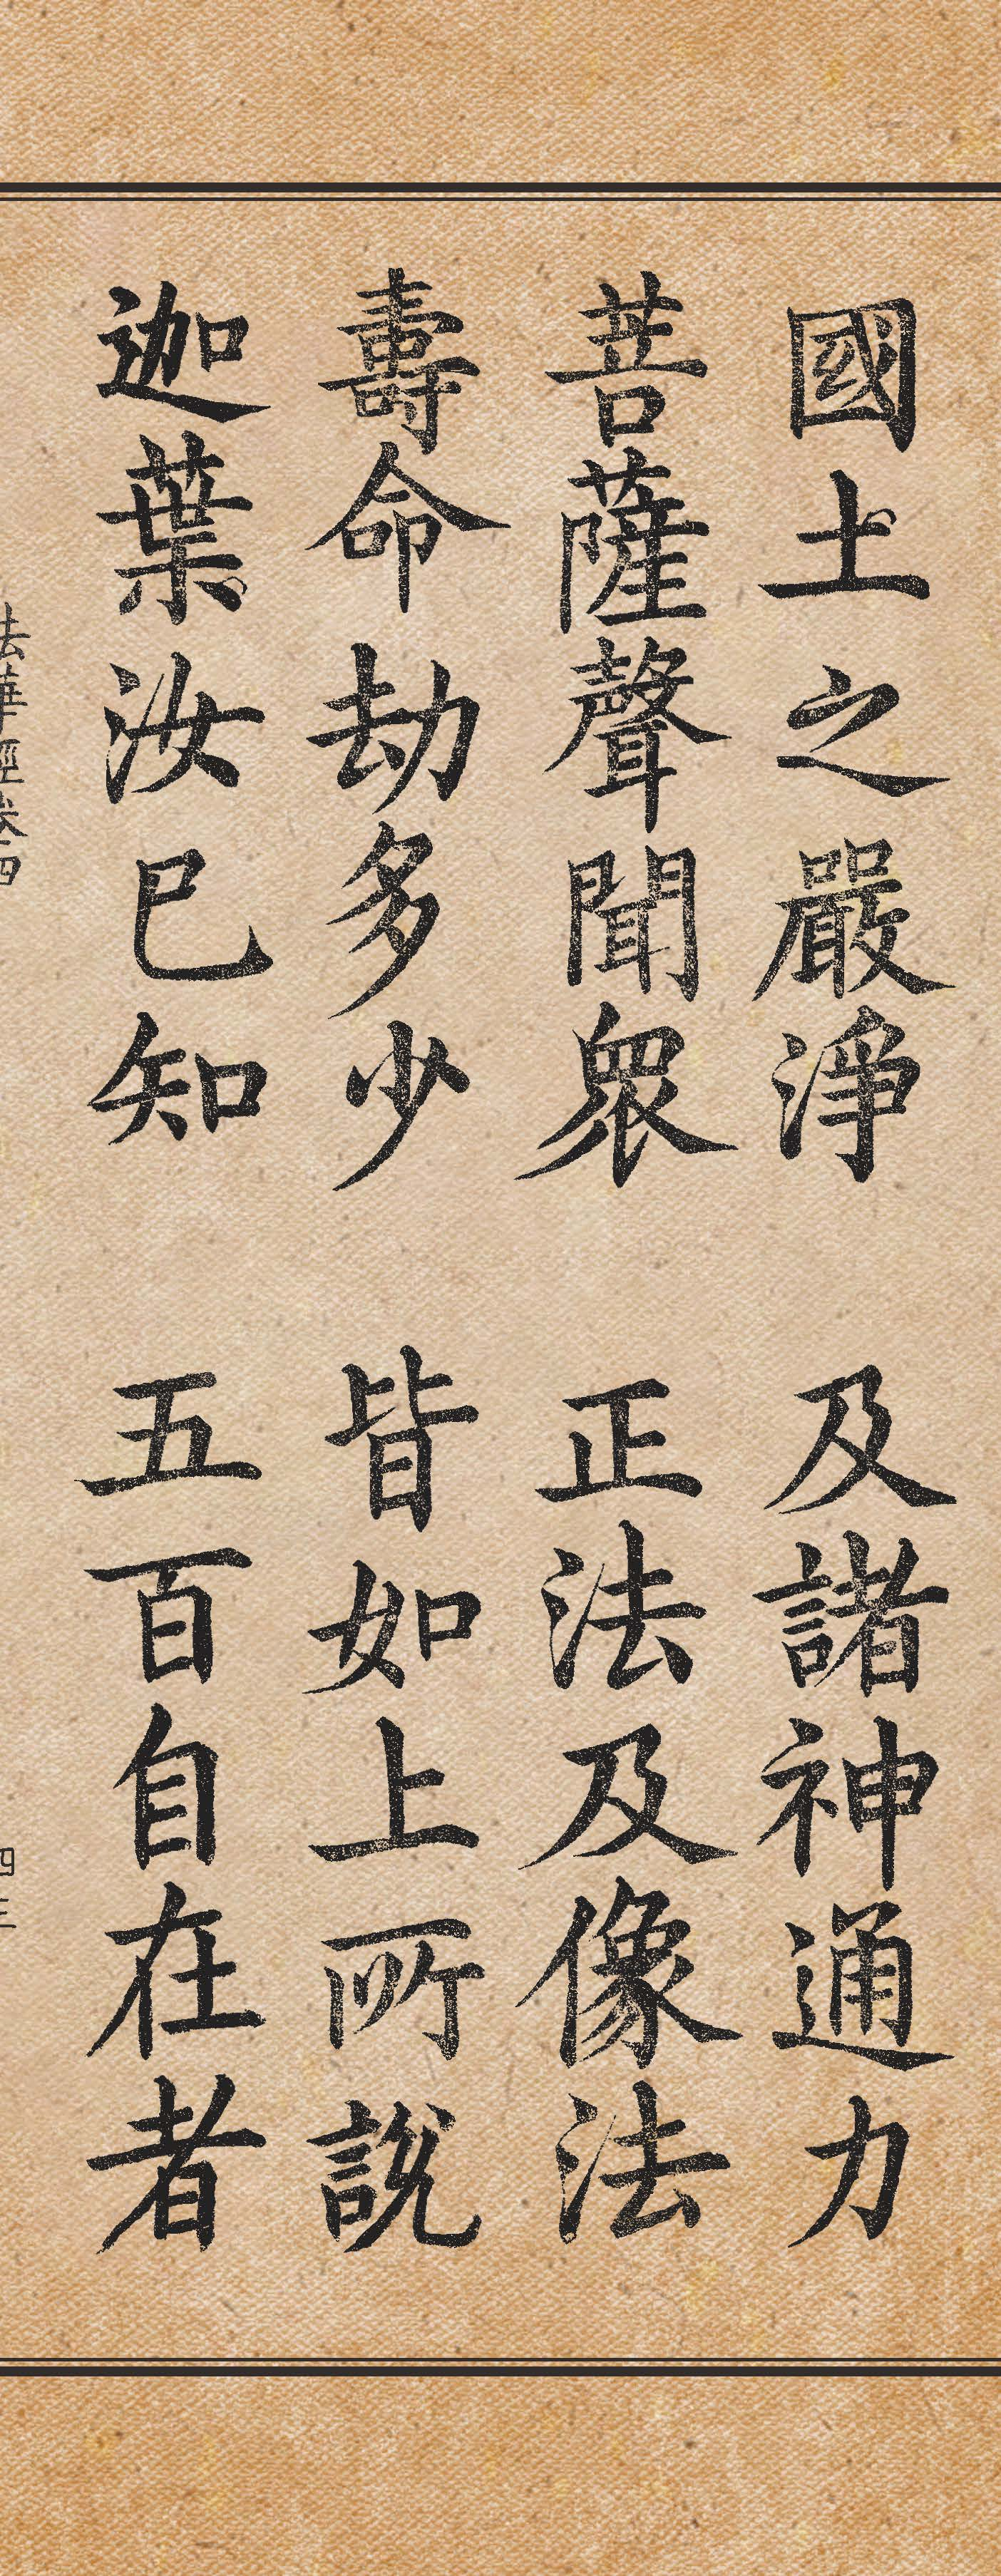 國土之嚴淨　及諸神通力
菩薩聲聞眾　正法及像法
壽命劫多少　皆如上所說
迦葉汝已知　五百自在者
法華經卷四　四三